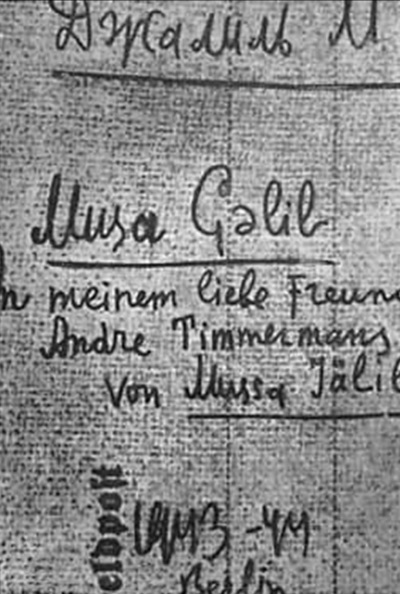 Джалиль М
Musa Gəlil
An meinem liebe Freun
Andre Timmermans
von Mussa Jälil
eldpost
1943-44
Berlin